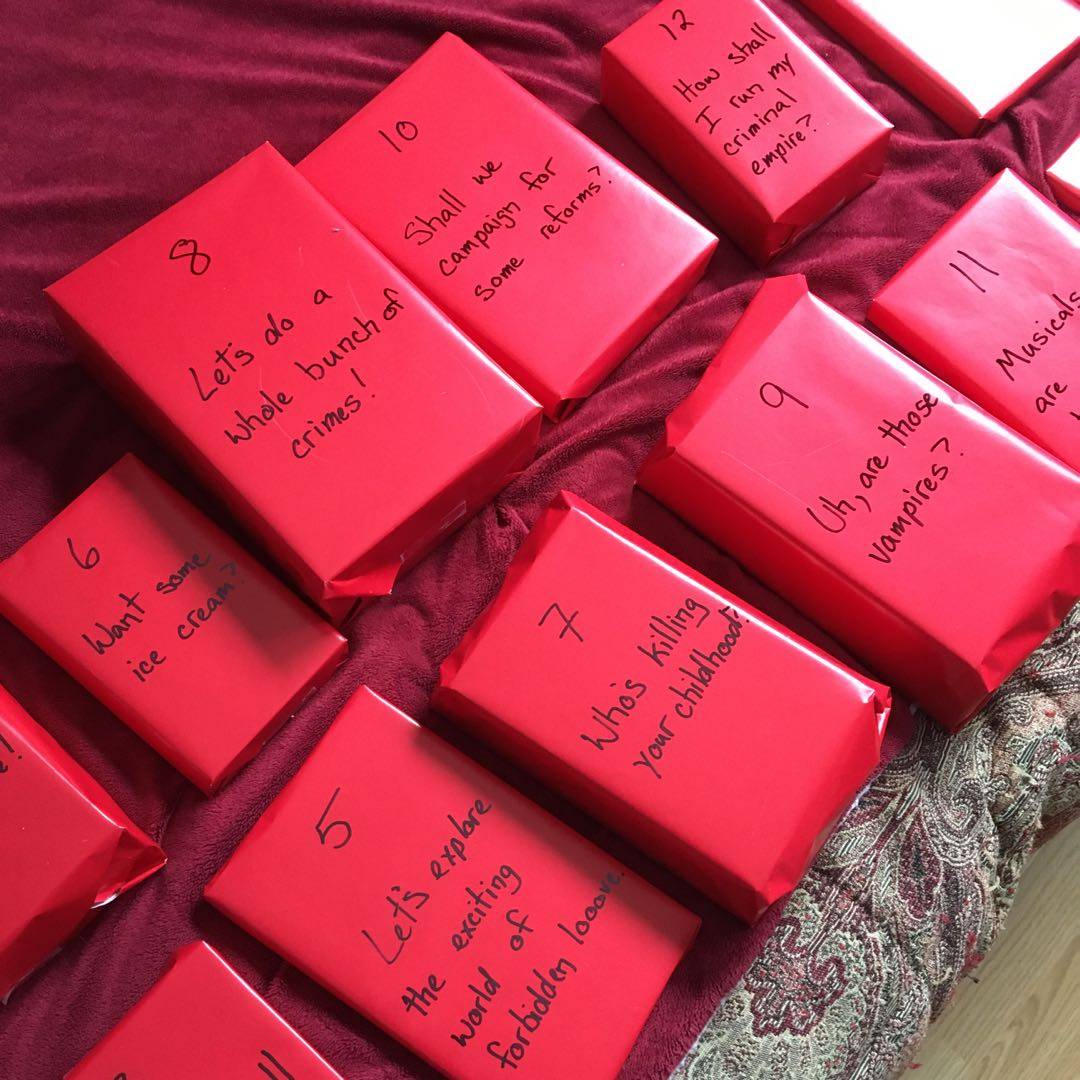 12
How shall
I run my
criminal
empire?
10
Shall we
campaign for
some reforms?
8
Let's do a
whole bunch of
crimes!
11
Musicals
are
9
Uh, are those
vampires?
6
Want some
ice cream?
7
Who's killing
your childhood?
5
Let's explore
the exciting
world of
forbidden looove.